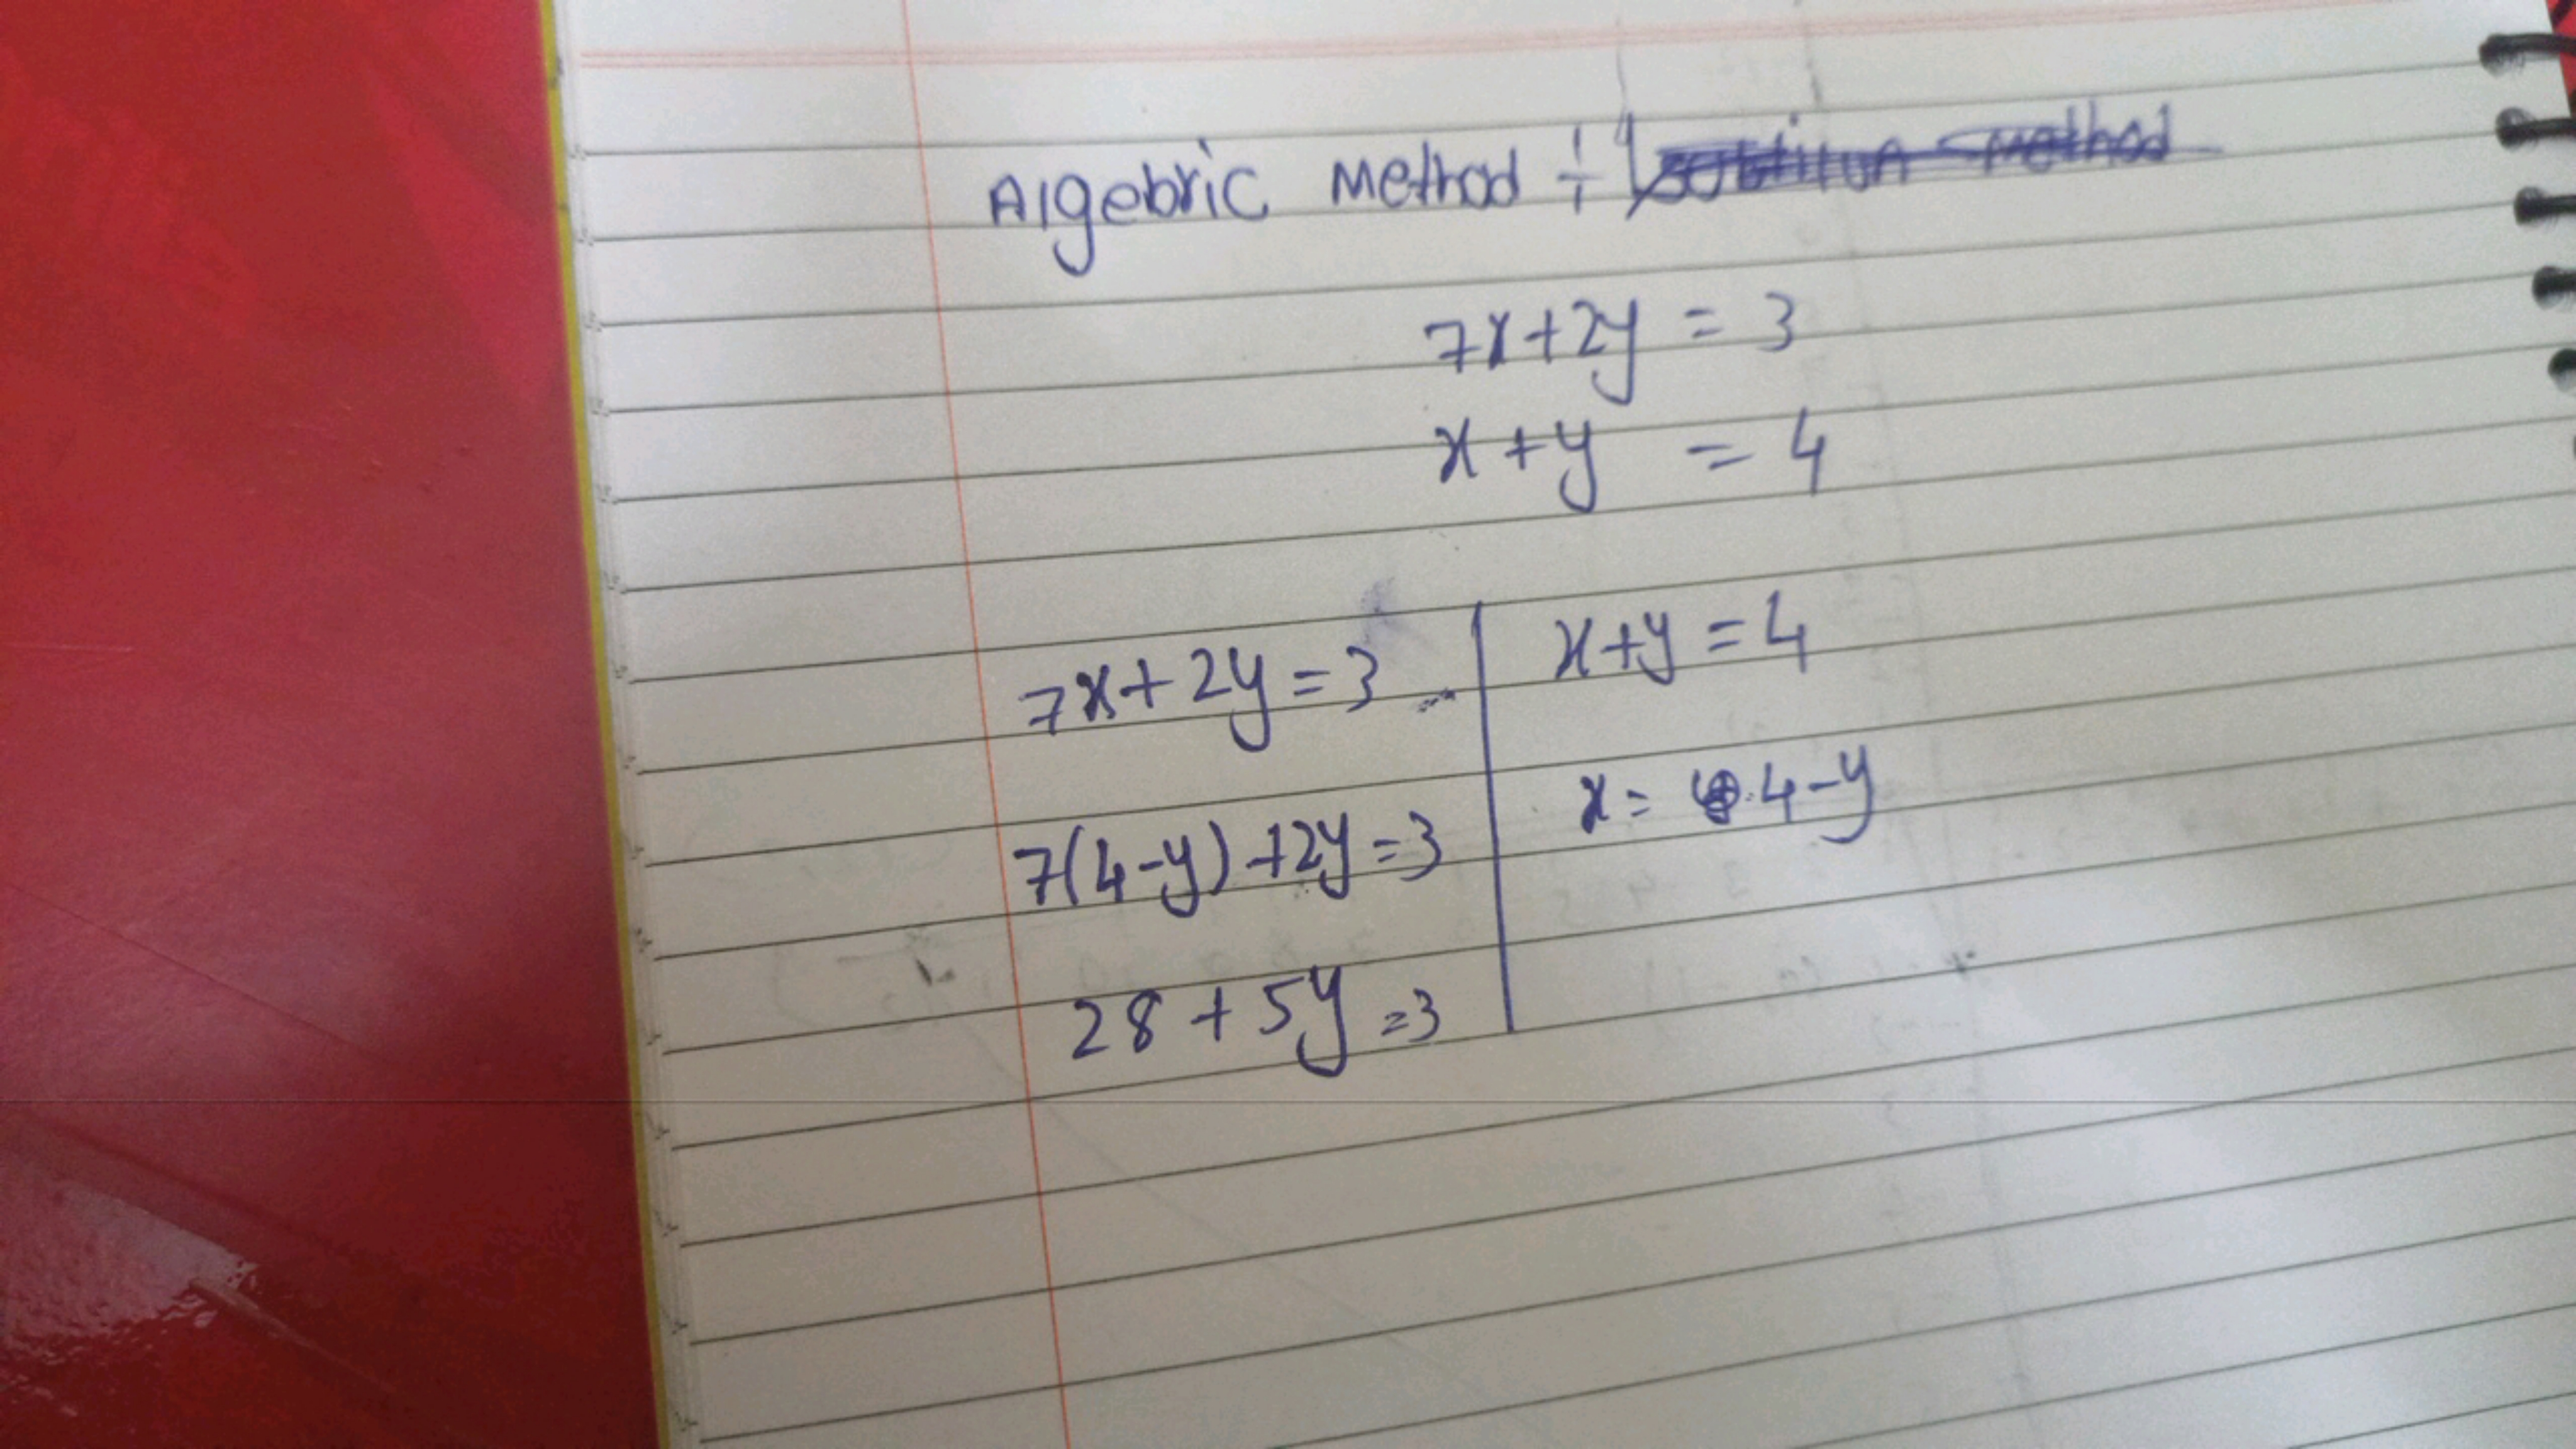 Algebric Method ÷
7x+2y = 3
x+y = 4
7x+2y=3
7(4-y)+2y=3
28+5y=3
x+y=4
x= 4-y